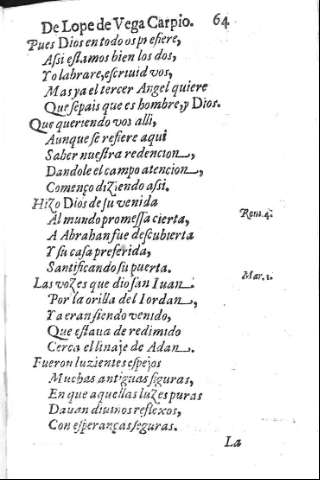 De Lope de Vega Carpio. 64
Pues Dios en todo os prefiere,
Assi estamos bien los dos,
Yo labrare, escriuid vos,
Mas ya el tercer Angel quiere
Que sepais que es hombre, y Dios.
Que queriendo vos alli,
Aunque se refiere aqui
Saber nuestra redencion,
Dandole el campo atencion,
Començo diziendo assi.
Hizo Dios de su venida
Al mundo promessa cierta, Rom. 4.
A Abrahan fue descubierta
Y su casa preferida,
Santificando su puerta.
Las vozes que dio san Iuan Mar. 1.
Por la orilla del Iordan,
Ya eran siendo venido,
Que estaua de redimido
Cerca el linaje de Adan.
Fueron luzientes espejos
Muchas antiguas figuras,
En que aquellas luzes puras
Dauan diuinos reflexos,
Con esperanças seguras.
La